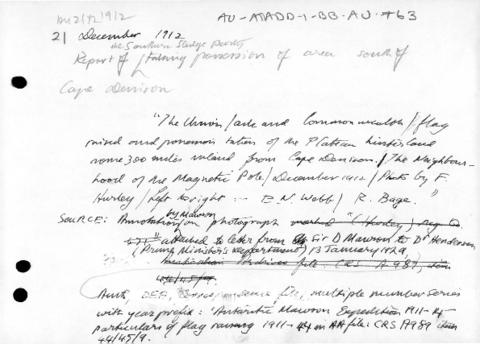 in 21/12/1912
AU-ATADD-1-BB-AU-#63
21 December 1912
the Southern Sledge Party
Report of / taking possession of area south of
Cape Denison
"The Union/Jack and Commonwealth/flag
raised and possession taken of the Plateau hinterland
some 300 miles inland from Cape Denison./The Neighbour-
hood of the Magnetic Pole/December 1912/Photo by F.
Hurley/Left to right :- E.N. Webb/ R. Bage."
by Mawson
SOURCE: Annotation/on photograph marked "(Hurley)
attached to letter from Sir D Mawson to Dr Henderson,
(Prime Minister's Department) 13 January 1929
file: CRS A981, item
Aust, DEA, Correspondence file, multiple number series
with year prefix: 'Antarctic Mawson Expedition 1911-14
particulars of flag raising 1911-14 in AA file: CRS A989 item
44/45/9.